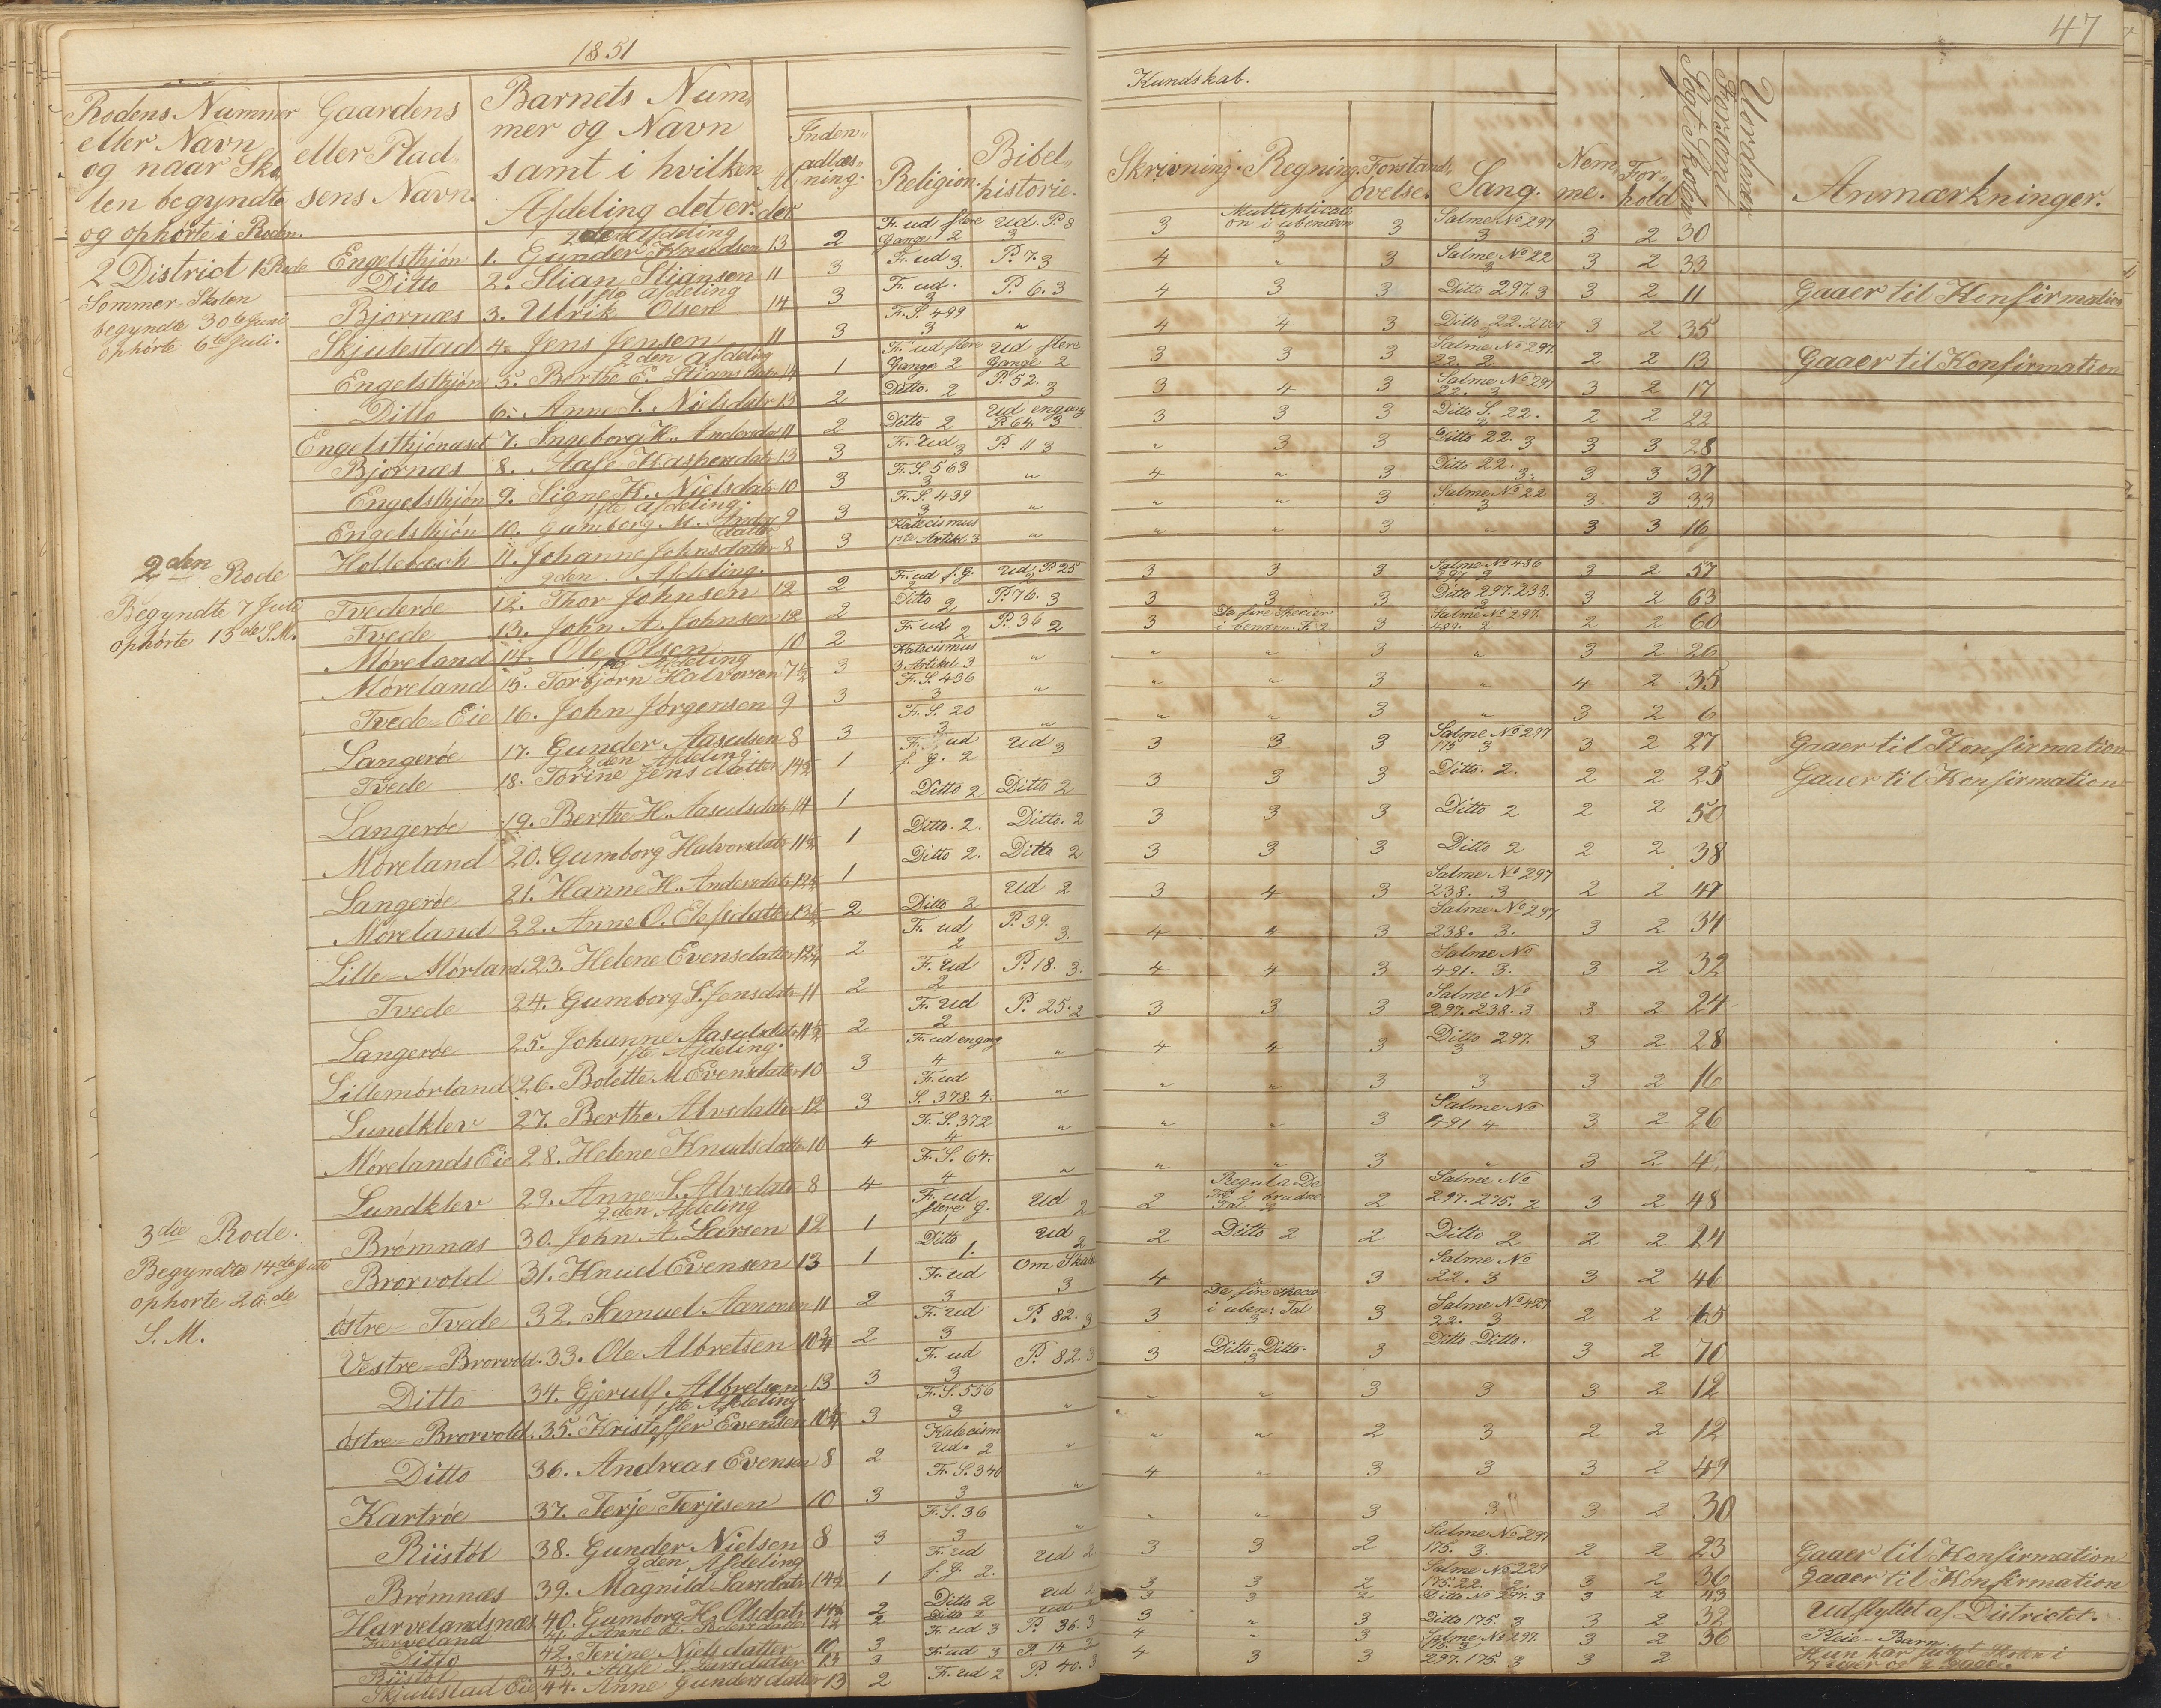 1851
47
Rodens Nummer
eller Navn
og naar Sko„
len begyndte
og ophørte i Roden.
Gaardens
eller Plad„
sens Navn.
Barnets Num„
mer og Navn
samt i hvilken
Afdeling det er.
Al
der
Kundskab.
Inden„
adlæs„
ning.
Religion.
Bibel„
historie.
Skrivning.
Regning.
Forstands„
øvelse.
Sang.
Nem„
me.
For„
hold
Søgt Skolen
Forsømt
Vurderer
Anmærkninger.
2 District 1 Rode
Sommer Skolen
begyndte 30te Juni
ophørte 6te Juli.
2den Afdeling
Engelsthjøn 1. Gunder Knudsen 13 2 F. ud flere Gange 2 Ud. P. 8 3 3 Multiplicati on i ubenævn 3 3 Salme No 297 3 3 2 30
Ditto 2. Stian Stiansen 11 3 F. ud 3. P. 7. 3 4 „ 3 Salme No 22 3 3 2 33
1ste Afdeling
Bjørnæs 3. Ulrik Olsen 14 3 F. ud. 3 P. 6. 3 4 3 3 Ditto 297. 3 3 2 11 Gaaer til Konfirmation
Skjulestad 4. Jens Jensen 11 3 F. S. 499 3 „ 4 4 3 Ditto 22. 3 2 35
2den Afdeling
Engelsthjøn 5. Berthe E. Stiansdatr 14 1 F. ud flere Gange 2 Ud flere Gange 2 3 3 3 Salme No 297. 22. 2 2 2 13 Gaaer til Konfirmation
Ditto 6. Anne S. Nielsdatr 13 2 Ditto. 2 P. 52. 3 3 4 3 Salme No 297 22. 3 3 2 17
Engelsthjønæset 7. Ingeborg K. Andersdatr 11 2 Ditto 2 Ud engang P. 64. 3 3 3 3 Ditto S. 22. 2 2 22
Bjørnæs 8. Aase Kaspersdatr 13 3 F. Ud 3 P. 11 3 „ 3 3 Ditto 22. 3 3 3 28
Engelsthjøn 9. Signe K. Nielsdatr 10 3 F. S. 563 3 „ 4 „ 3 Ditto 22. 3. 3 3 37
1ste Afdeling.
Engelsthjøn 10. Gumborg M. Andersdatter 9 3 F. S. 439 3 „ „ „ 3 Salme No 22 3 3 3 33
Hollebæch 11. Johanne Johnsdatter 8 3 Katecismus 1ste Artikl 3 „ „ „ 3 „ 3 3 16
2den Rode
Begyndte 7 Juli
ophørte 13de S. M.
2den Afdeling.
Tvederøe 12. Thor Johnsen 12 2 F. ud f. g. 2 Ud. P. 25 2 3 3 3 Salme No 486 297 2 3 2 57
Tvede 13. John A. Johnsen 12 2 Ditto 2 P. 76. 3 3 3 3 Ditto 297. 238. 3 3 2 63
Møreland 14. Ole Olsen 10 2 F. ud 2 P. 36 2 3 De fire Specier i benævn: T. 2 3 Salme No 297. 489. 2 2 2 60
1ste Afdeling
Møreland 15. Torbjørn Halvorsen 7½ 3 Katecismus 3 Artikel 3 „ „ „ 3 „ 3 2 26
Tvede-Eie 16. John Jørgensen 9 3 F. S. 436 3 „ „ „ 3 „ 4 2 35
Langerøe 17. Gunder Aasulsen 8 3 F. S. 20 3 „ „ „ 3 „ 3 2 6
2den Afdeling.
Tvede 18. Torine Jensdatter 14½ 1 F. ud f. g. 2 Ud 3 3 3 3 Salme No 297 175 3 3 2 27 Gaaer til Konfirmation
Langerøe 19. Berthe H. Aasulsdatr 14 1 Ditto 2 Ditto 2 3 3 3 Ditto. 2. 2 2 25 Gaaer til Konfirmation
Møreland 20. Gumborg Halvorsdatr 11½ 1 Ditto. 2. Ditto. 2 3 3 3 Ditto 2 2 2 50
Langerøe 21. Hanne H. Andersdatr 12½ 1 Ditto 2. Ditto 2 3 3 3 Ditto 2 2 2 38
Møreland 22. Anne O. Elefsdatter 13½ 2 Ditto 2 Ud 2 3 4 3 Salme No 297 238. 3 2 2 47
Lille-Mørland. 23. Helene Evensdatter 12¾ 2 F. ud 2 P. 39. 3. 4 „ 3 Salme No 297 238. 3. 3 2 34
Tvede 24. Gumborg S. Jensdatr 11 2 F. Ud 2 P. 18. 3. 4 4 3 Salme No 491. 3. 3 2 32
Langerøe 25. Johanne Aasulsdatr 11½ 2 F. Ud 2 P. 25. 2 3 3 3 Salme No 297. 238. 3 3 2 24
1ste Afdeling.
Lillemørland 26. Bolette M Evensdatter 10 3 F. ud engang 4 „ 4 4 3 Ditto 297. 3 3 2 28
Lundklev 27. Berthe Alvsdatter 12 3 F. ud S. 378. 4. „ „ „ 3 3 3 2 16
Mørelands Eie 28. Helene Knudsdatr 10 4 F. S. 372 4 „ „ „ 3 Salme No 491 4 3 2 26
Lundklev 29. Anne S. Alvsdatr 8 4 F. S. 64. 4 „ „ „ 3 „ 3 2 4
3die Rode.
Begyndte 14de Juli
ophørte 20de
S. M.
2den Afdeling
Brømnæs 30. John A. Larsen 12 1 F. ud flere g. 1 Ud 2 2 Regula De Tri i brudne Tal 2 2 Salme No 297. 275. 2 3 2 48
Brørvold 31. Knud Evensen 13 1 Ditto 1. Ud 2 2 Ditto 2 2 Ditto 2 2 2 24
østre-Tvede 32. Samuel Aanonsen 11 2 F. ud 3 Om Skab 3 4 „ 3 Salme No 22. 3 3 2 46
Vestre-Brørvold. 33. Ole Albretsen 10¾ 2 F. Ud 3 P. 82. 3 3 De fire Specier i uben: Tal 3 3 Salme No 427 22. 3 2 2 65
Ditto 34. Gjerulf Albretsen 13 3 F. ud 3 P. 82. 3 3 Ditto. Ditto. 3 3 Ditto Ditto. 3 2 70
1ste Afdeling.
østre-Brørvold. 35. Kristoffer Evensen 10¼ 3 F. S. 556 3 „ „ „ 3 3 3 2 12
Ditto 36. Andreas Evensen 8 2 Katecism Ud. 2 „ „ „ 2 3 2 2 12
Kartrøe 37. Terje Terjesen 10 3 F. S. 340 3 „ 4 „ 3 3 3 2 49
Riistøl 38. Gunder Nielsen 8 3 F. S. 36 3 „ „ „ 3 3 3 2 30
2den Afdeling
Brømnæs 39. Magnild Larsdatr 14½ 1 F. ud f. g. 2. Ud 2. 3 3 2 Salme No 297 175. 3. 2 2 23 Gaaer til Konfirmation
Harvelandsnæs 40. Gumborg H. Olsdatr 14½ 2 Ditto 2 Ud 2 3 3 2 Salme No 229 175. 22. 2. 3 2 36 Gaaer til Konfirmation
41. Anne 12 2 Ditto 2 Ud 2 3 3 2 Ditto No 297. 3 3 2 43
Ditto 42. Terine Nielsdatter 10 3 F. ud 3 P. 36. 3 3 „ 3 Ditto 175. 3 3 2 32 Udflyttet af Districtet.
Riistøl 43. Aase S. Larsdatter 13 3 F. ud 3 P. 14 3 4 „ 3 Salme No 297. 175. 3 3 2 36 Pleie-Barn.
Skjulestad Eie 44. Anne Gundersdatter 13 2 F. ud 2 P. 40. 3 4 3 3 297. 175. 3 3 2 Hun har søgt Skolen i